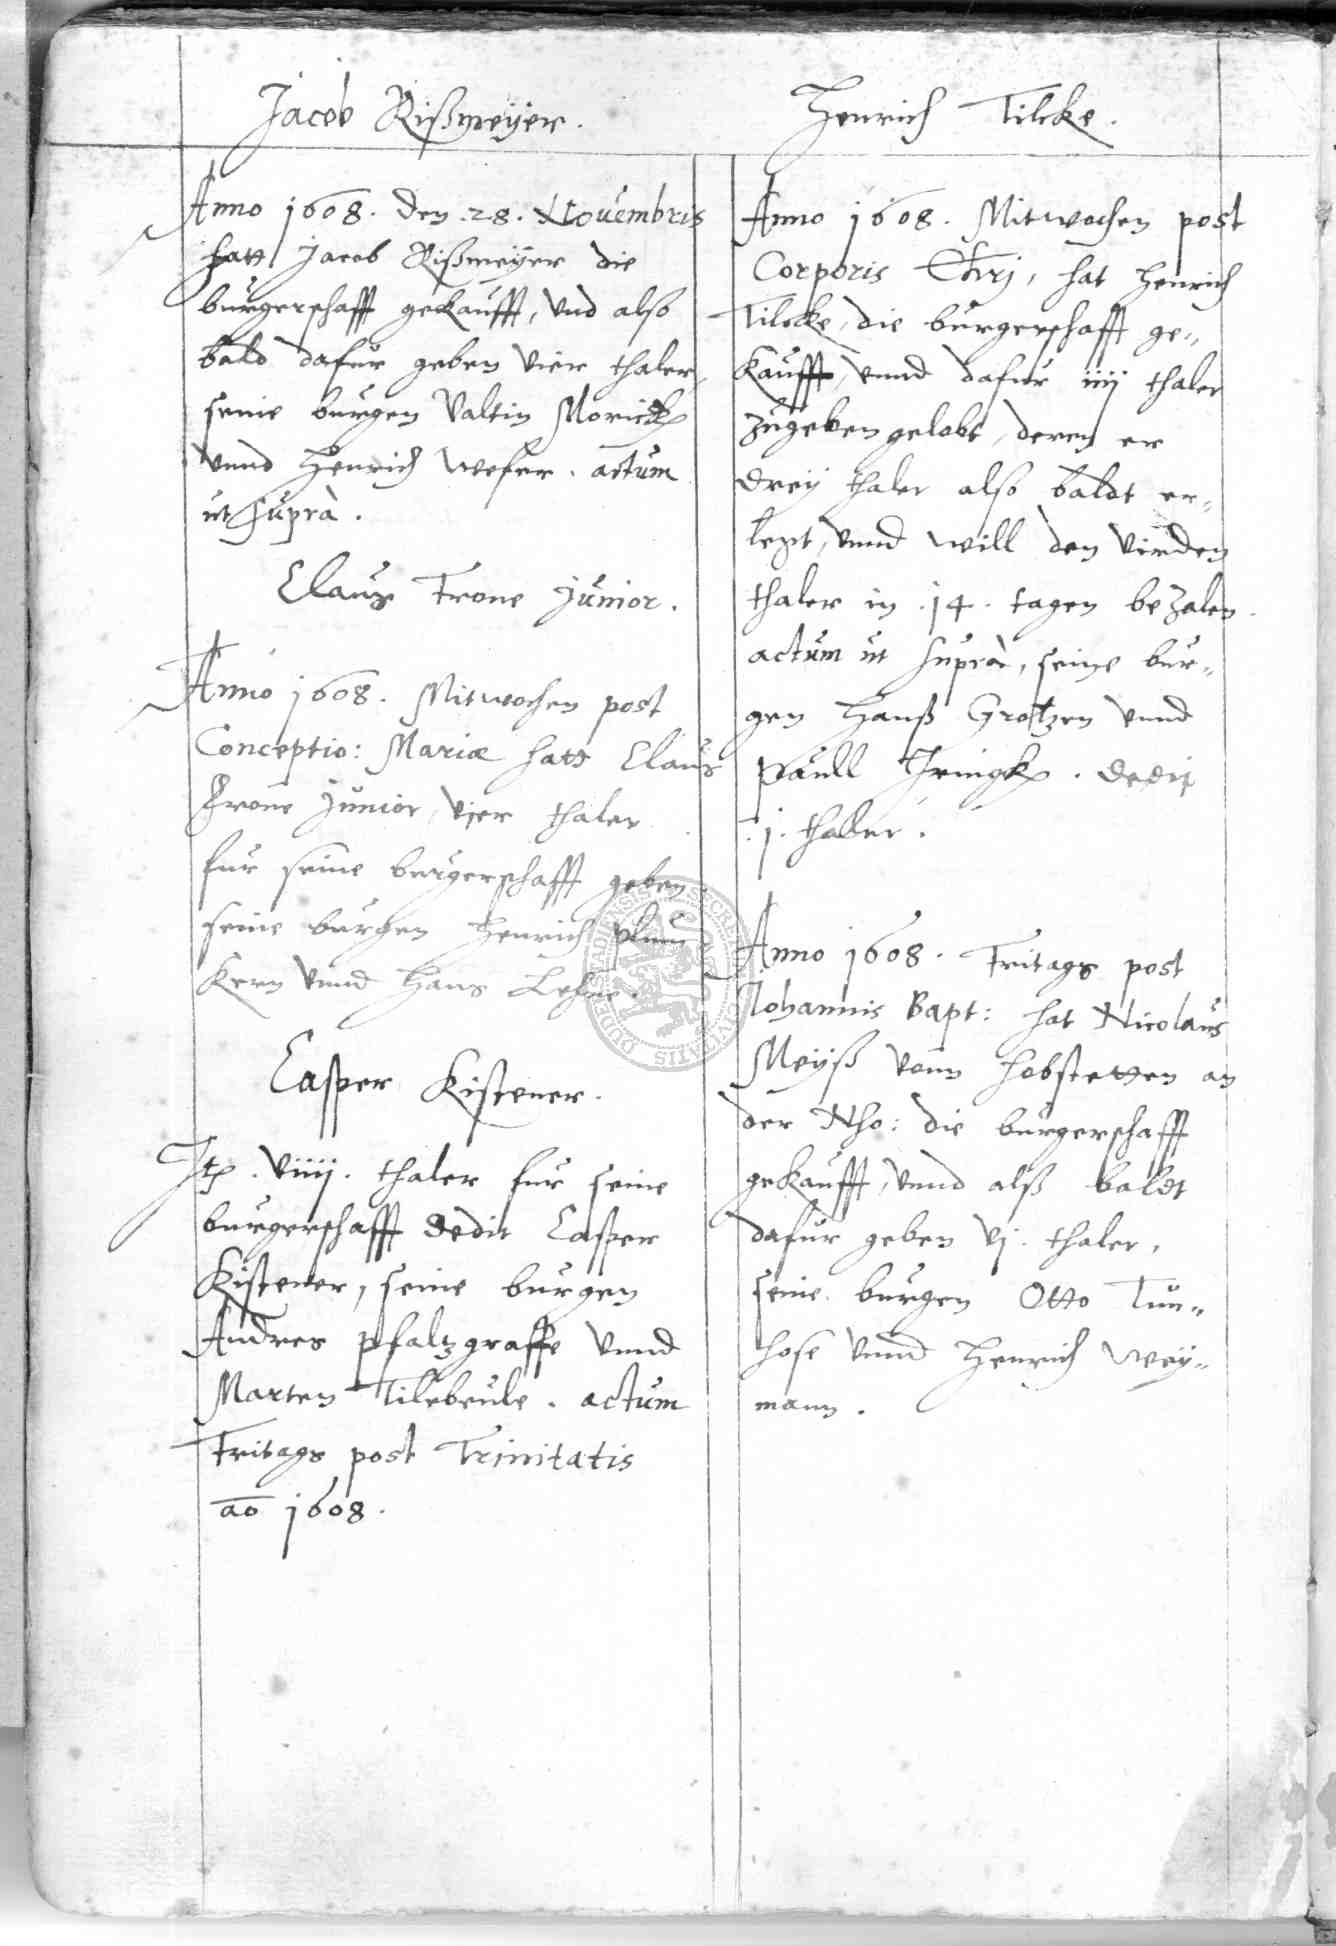 Jacob Rißmeÿer.
Anno 1608. den .28. Nouembris
hatt Jacob Rißmeÿer die
burgerschafft gekaufft, vnd also
bald dafur geben vier thaler,
seine burgen Valtin Morickẹ
vnnd Henrich Weser. actum
ut suprà.
Claus Trone Junior.
Anno 1608. Mitwochen post
Conceptio: Mariæ hatt Claus
Trone Junior, vier thaler
fur seine burgerschafft geben
seine burgen Henrich
kern vnnd Hans Lehne.
Casper Kistener.
Jtem. viiij. thaler fur seine
burgerschafft dedit Casper
Kistener, seine burgen
Andres pfaltzgraffe vnnd
Marten Tilebeule. actum
Fritags post Trinitatis
ao 1608.
Henrich Tilcke.
Anno 1608. Mitwochen post
Corporis Chrj, hat Henrich
Tilcke, die burgerschafft ge„
kaufft, vnnd dafur iiij thaler
zugeben gelobt, deren er
dreÿ thaler also baldt er„
legt, vnnd will den virden
thaler in .14. tagen bezalen.
actum ut suprà, seine bur„
gen Hanß Grotzen vnnd
Paull Jringk. dedit
.j. thaler.
Anno 1608. Fritags post
Johannis Bapt: hat Nicolaus
Meÿß vonn Hobstetten an
der Nho: die burgerschafft
gekaufft, vnnd alß baldt
dafur geben vj. thaler,
seine burgen Otto Tun„
hose vnnd Henrich Weÿ„
mann.